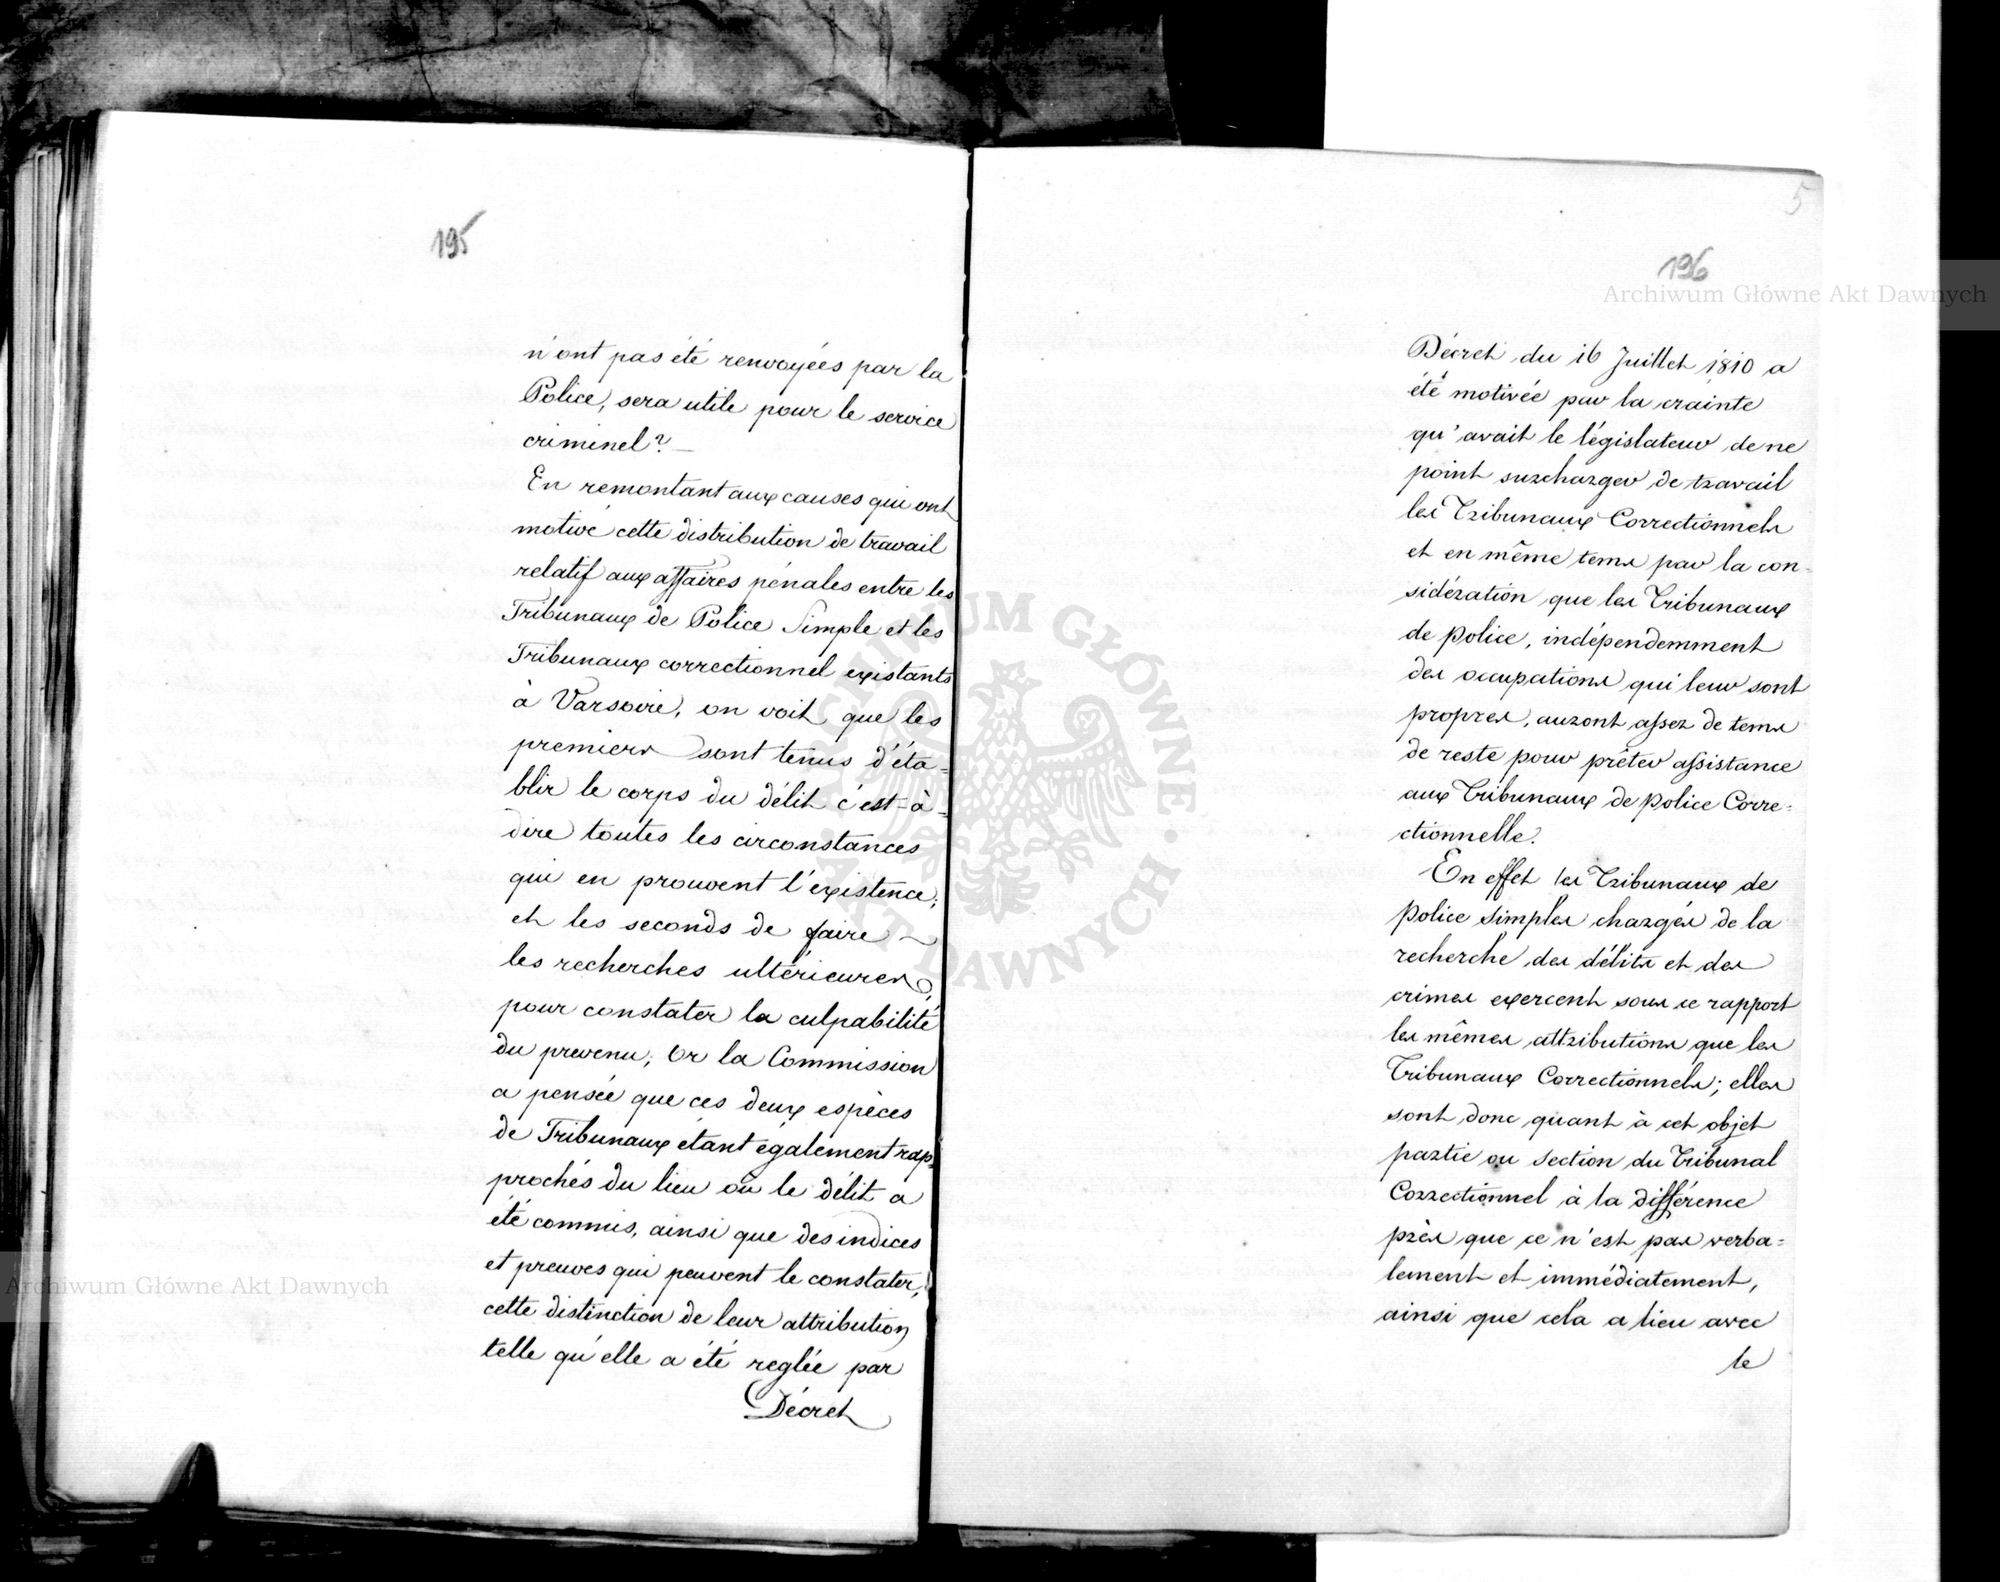 195
n'ont pas été renvoyées par la
Police, sera utile pour le service
criminel? —
En remontant aux causes qui ont
motivé cette distribution de travail
relatif aux affaires pénales entre les
Tribunaux de Police Simple et les
Tribunaux correctionnel existants
à Varsovie, on voit que les
premiers sont tenus d'éta=
blir le corps du délit c'est-à-
dire toutes les circonstances
qui en prouvent l'existence,
et les seconds de faire
les recherches ultérieures,
pour constater la culpabilité
du prevenu; Or la Commission
a pensée que ces deux espèces
de Tribunaux étant également rap=
prochés du lieu où le délit a
été commis, ainsi que des indices
et preuves qui peuvent le constater,
cette distinction de leur attribution
telle qu'elle a été reglée par
Décret
5
196
Décret du 16 Juillet 1810 a
été motivée par la crainte
qu'avait le législateur de ne
point surcharger de travail
les Tribunaux Correctionnels
et en même tems par la con=
sidération que les Tribunaux
de police, indépendemment
des occupations qui leur sont
propres, auront assez de tems
de reste pour prêter assistance
aux Tribunaux de police Corre=
ctionnelle.
En effet les Tribunaux de
police simples chargés de la
recherche des délits et des
crimes exercent sous ce rapport
les mêmes attributions que les
Tribunaux Correctionnels; elles
sont donc quant à cet objet
partie ou section du Tribunal
Correctionnel à la différence
près que ce n'est pas verba=
lement et immédiatement,
ainsi que cela a lieu avec
le
Archiwum Główne Akt Dawnych
Archiwum Główne Akt Dawnych
ARCHIWUM GŁÓWNE AKT DAWNYCH